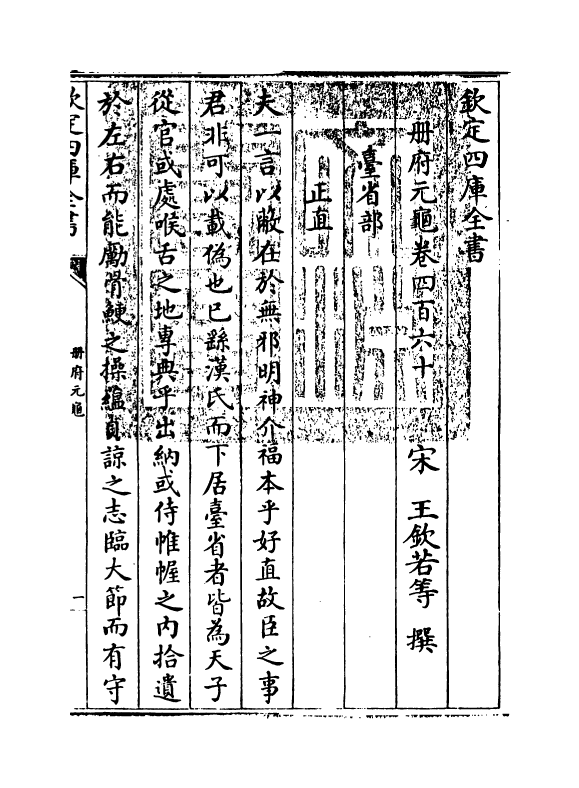 欽定四庫全書
冊府元龜卷四百六十　宋　王欽若等　撰
臺省部
正直
夫一言以蔽在於無邪明神介福本乎好直故臣之事
君非可以載偽也已繇漢氏而下居臺省者皆為天子
從官或處喉舌之地專典乎出納或侍帷幄之内拾遺
於左右而能勵骨鯁之操藴貞諒之志臨大節而有守
欽定四庫全書
冊府元龜
一